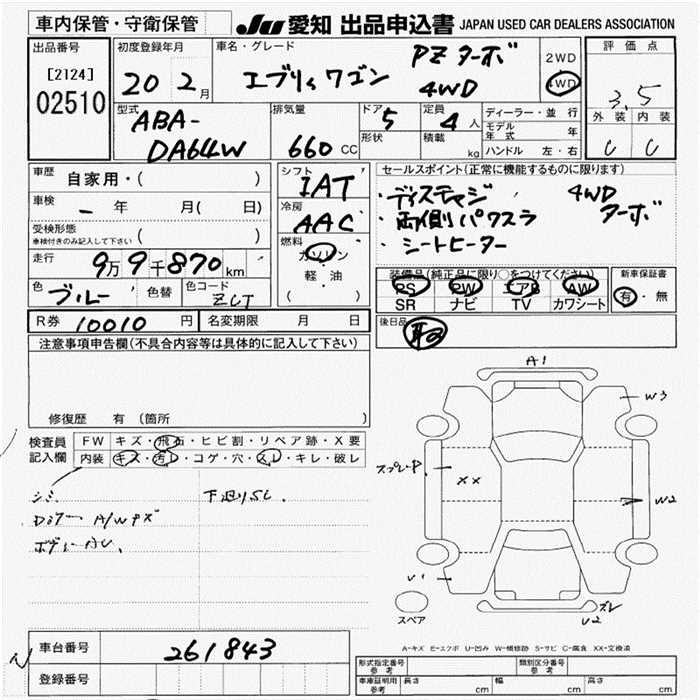 車内保管・守衛保管
JU 愛知 出品申込書 JAPAN USED CAR DEALERS ASSOCIATION
出品番号
[2124]
02510
初度登録年月
20 2月
車名・グレード
エブリィワゴン PZターボ 4WD
2WD
4WD
評価点
3.5
外装 内装
C C
型式
ABA-
DA64W
排気量
660 CC
ドア 5
形状
定員 4人
積載 kg
ディーラー・並行
モデル年式 年
ハンドル 左・右
車歴 自家用・( )
車検 - 年 月( 日)
受検形態
車検付きのみ記入して下さい ( )
走行 9万9千870km
色 ブルー 色替 色コード ZCT
シフト
IAT
冷房
AAC
燃料
ガソリン
軽・油
( )
セールスポイント(正常に機能するものに限ります)
・ディスチャージ 4WD
・両側パワスラ ターボ
・シートヒーター
装備品(純正品に限り○をつけてください)
PS PW エアB AW
SR ナビ TV カワシート
新車保証書
有・無
R券 10010 円 名変期限 月 日
後日品
注意事項申告欄(不具合内容等は具体的に記入して下さい)
修復歴 有(箇所
検査員記入欄
FW キズ・飛石・ヒビ割・リペア跡・X要
内装 キズ・汚レ・コゲ・穴・スレ・キレ・破レ
シミ
A/Wキズ
下廻りSL.
A1
W3
スプレーP
XX
W2
U1
スペア
ズレ
U2
A-キズ E-エクボ U-凹み W-補修跡 S-サビ C-腐食 XX-交換済
車台番号 261843
登録番号
形式指定番号 参考
類別区分番号 参考
車庫証明用 参考 長さ cm 幅 cm 高さ cm